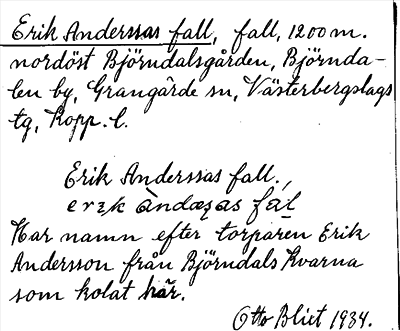 Erik Anderssas fall, fall, 1200 m.
nordöst Björndalsgården, Björnda-
len by, Grangärde sn, Västerbergslags
tg, Kopp. l.
Erik Anderssas fall.
Har namn efter torparen Erik
Andersson från Björndals Kvarna
som kolat här.
Otto Blixt 1934.